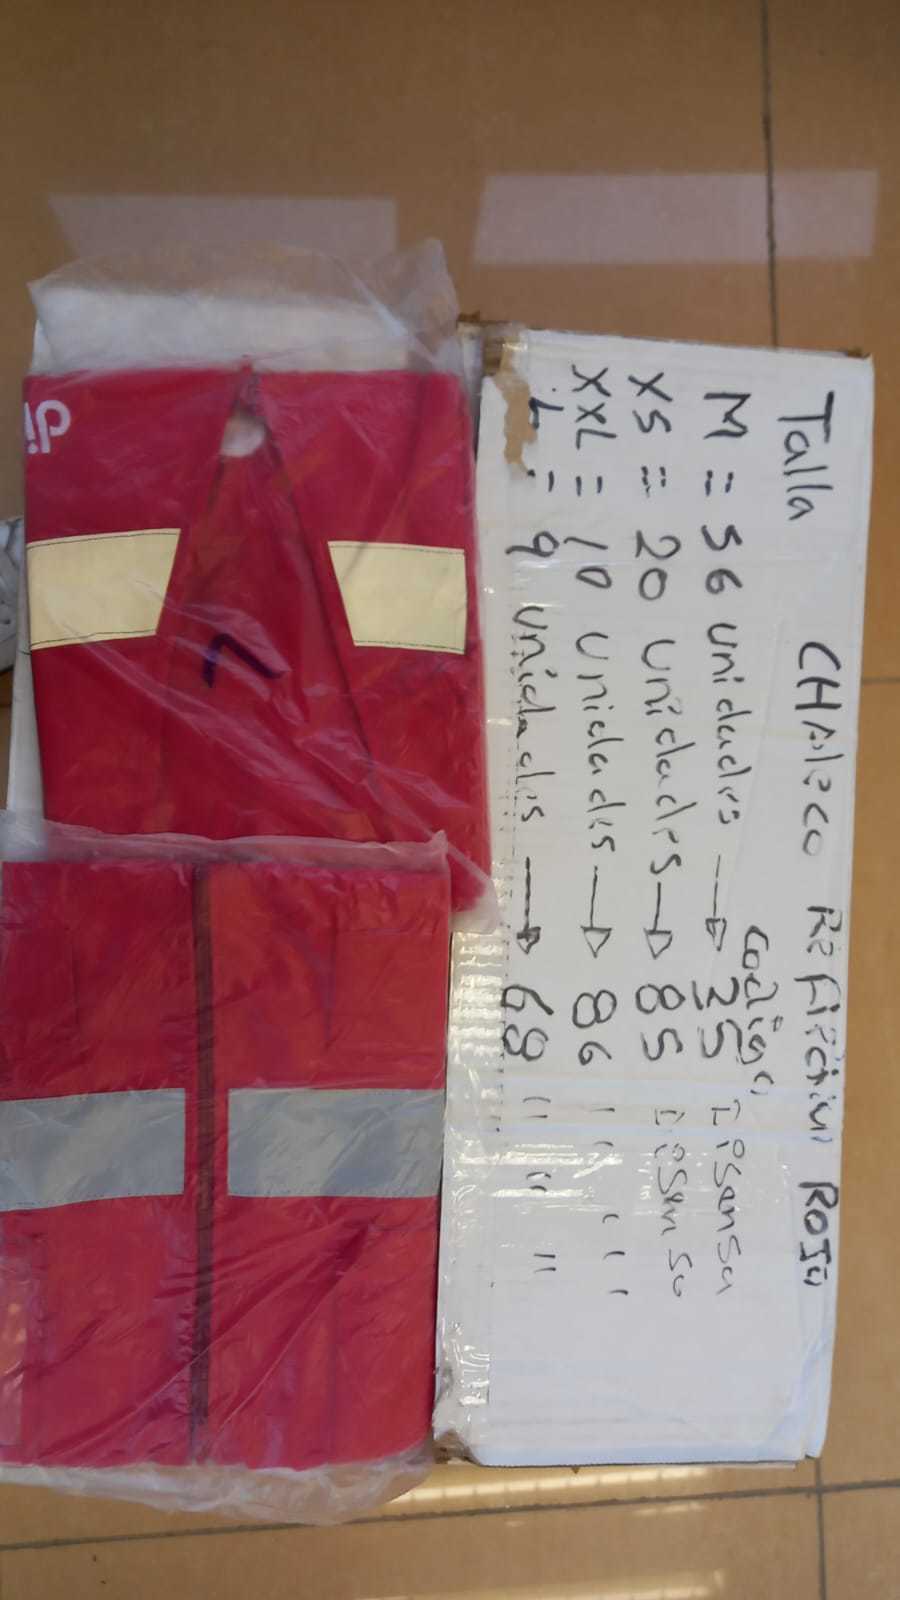 Talla CHALECO REFLECTIVO ROJO
codigo
M = 56 unidades → 25 Dipsensa
XS = 20 unidades → 85
XXL = 10 unidades → 86 " " "
L = 9 unidades → 68 " " "
L
di